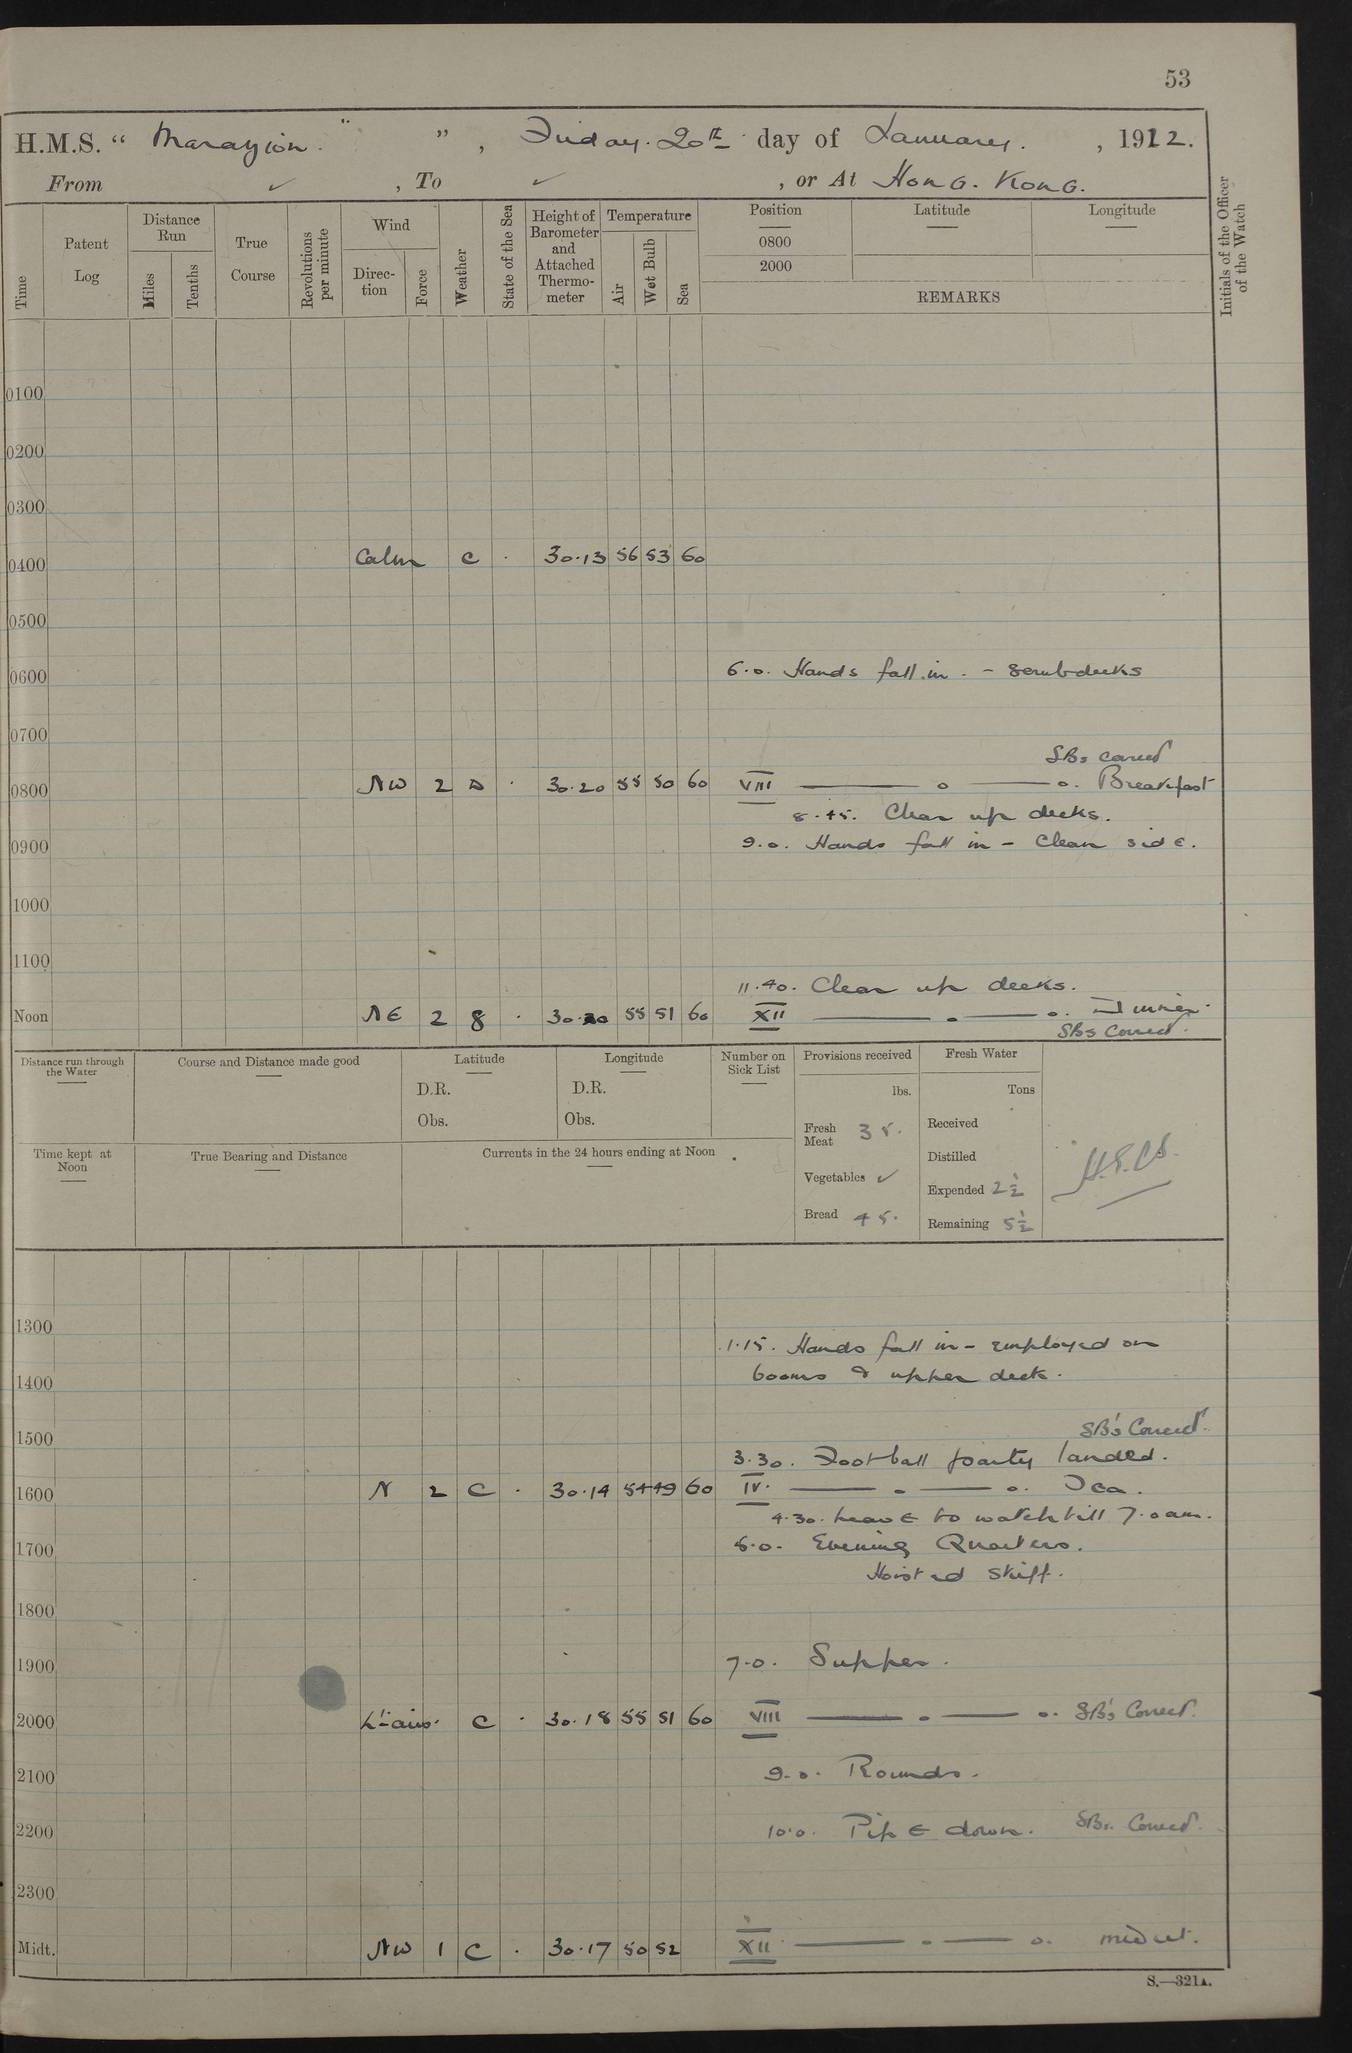 53
H.M.S. “ Marazion. ” , Friday. 20th day of January. , 1922.
From ✓ , To ✓ , or At Hong. Kong.
Time
Patent Log
Distance Run
Miles
Tenths
True Course
Revolutions per minute
Wind
Direction
Force
Weather
State of the Sea
Height of Barometer and Attached Thermometer
Temperature
Air
Wet Bulb
Sea
Position
0800
2000
Latitude
Longitude
REMARKS
Initials of the Officer of the Watch
0100
0200
0300
0400 Calm c . 30.13 56 53 60
0500
0600 6.0. Hands fall in. - scrub decks
0700
SBs correct
0800 NW 2 . 30.20 55 50 60 VIII — o — o. Breakfast
8.45. Clear up decks.
0900 9.0. Hands fall in - Clean side.
1000
1100
11.40. Clear up decks.
Noon NE 2 8 . 55 51 60 XII — o — o. Dinner.
SBs Correct.
Distance run through the Water
Course and Distance made good
Latitude
D.R.
Obs.
Longitude
D.R.
Obs.
Number on Sick List
Provisions received
lbs.
Fresh Meat 35.
Vegetables ✓
Bread 45.
Fresh Water
Tons
Received
Distilled
Expended 2½
Remaining 5½
Time kept at Noon
True Bearing and Distance
Currents in the 24 hours ending at Noon
1300
1.15. Hands fall in - employed on
1400 booms & upper deck.
1500 SB's Correct.
3.30. Football party landed.
1600 N 2 C . 30.14 54 49 60 IV. — o — o. Tea.
4.30. Leave to watch till 7.0 am.
1700 5.0. Evening Quarters.
Hoisted skiff.
1800
1900 7.0. Supper.
2000 Lt airs. C . 30.18 55 51 60 VIII — o — o. SB's Correct.
2100 9.0. Rounds.
2200 10.0. Pipe down. SBs. Correct.
2300
Midt. NW 1 C . 30.17 50 52 XII — o — o.
S.—321A.